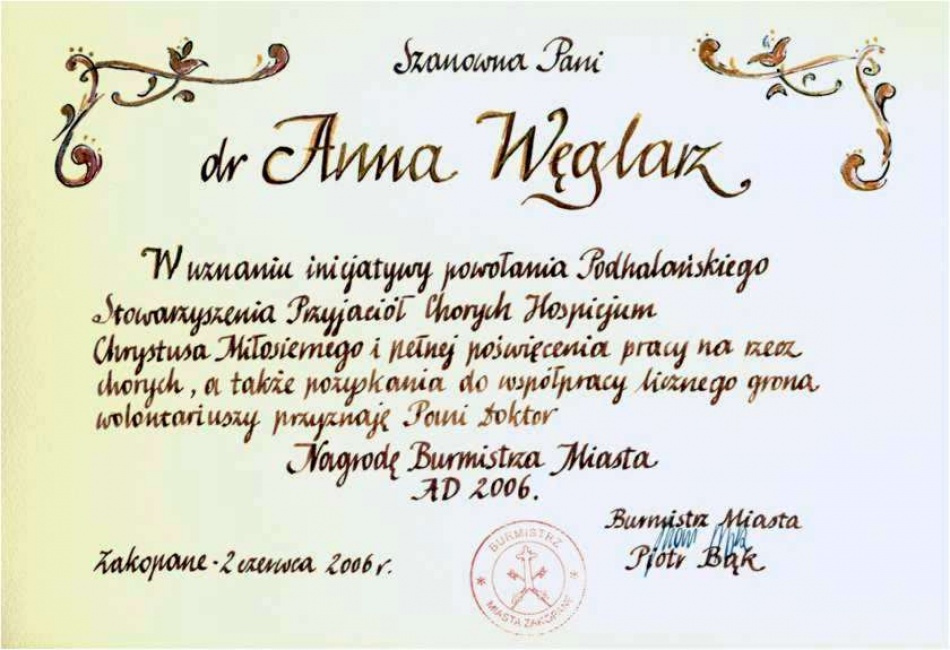 Szanowna Pani
dr Anna Węglarz
W uznaniu inicjatywy powołania Podhalańskiego
Stowarzyszenia Przyjaciół Chorych Hospicjum
Chrystusa Miłosiernego i pełnej poświęcenia pracy na rzecz
chorych, a także pozyskania do współpracy licznego grona
wolontariuszy przyznaję Pani Doktor
Nagrodę Burmistrza Miasta
AD 2006.
Burmistrz Miasta
Piotr Bąk
Zakopane - 2 czerwca 2006 r.
BURMISTRZ
MIASTA ZAKOPANE